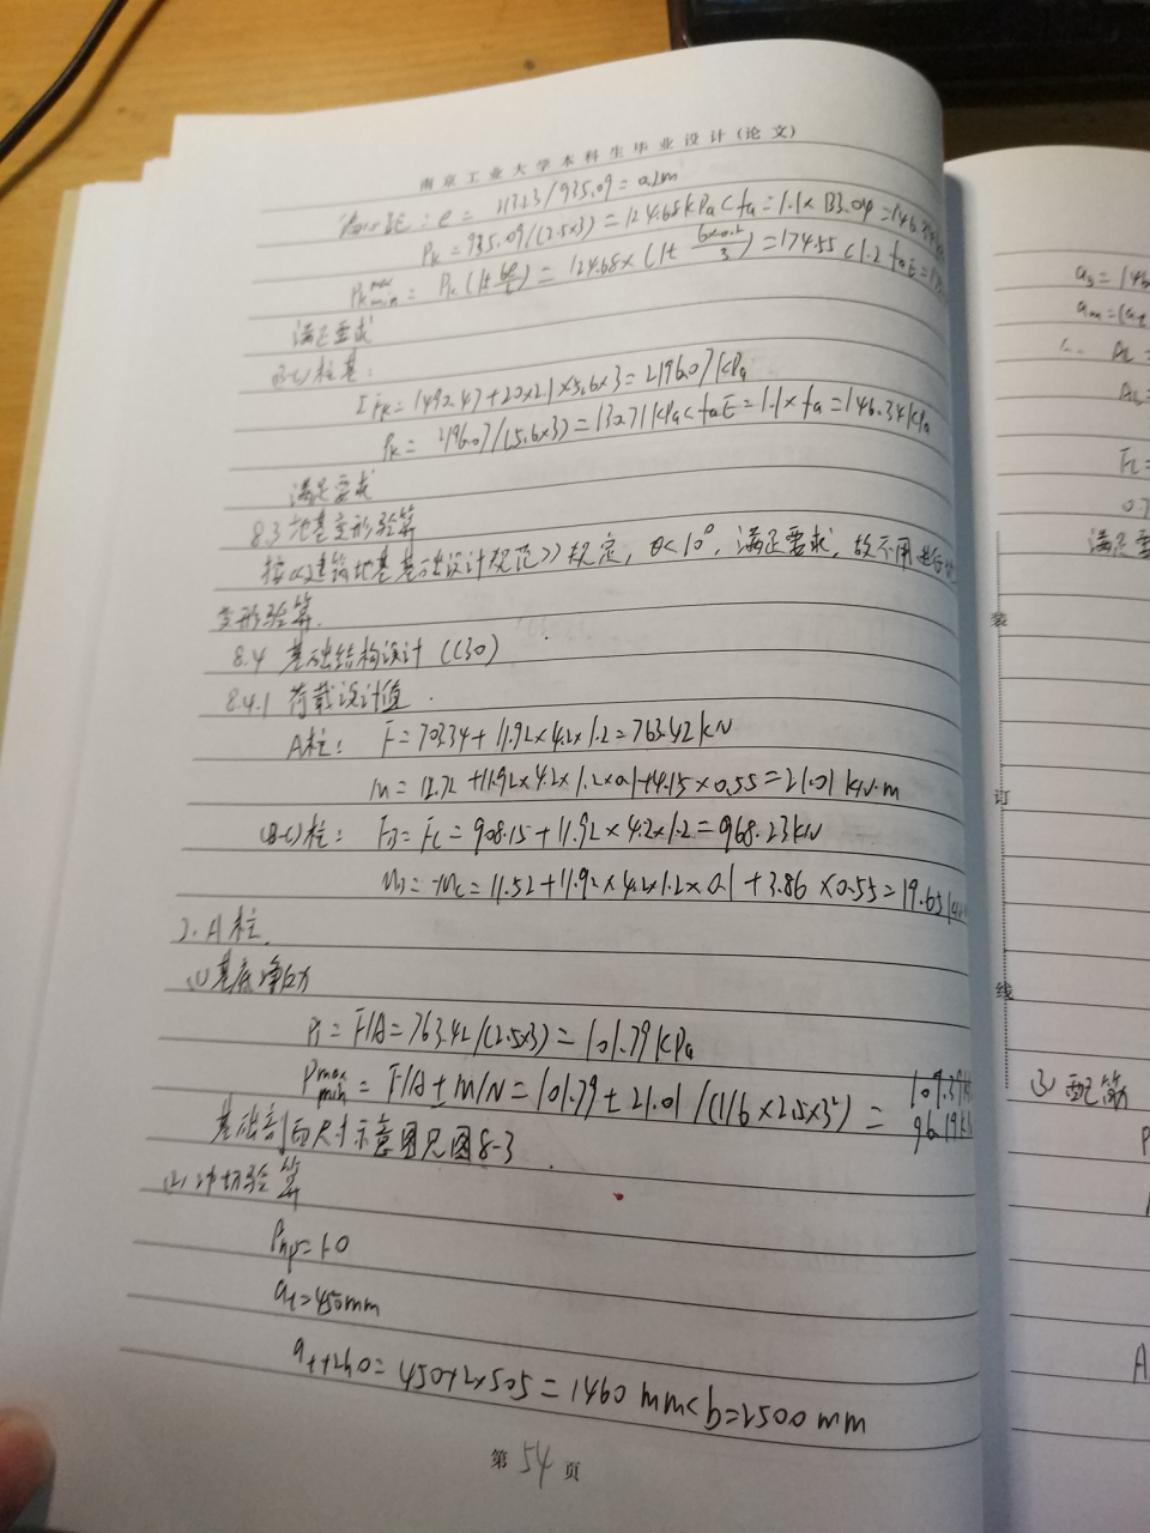 南京工业大学本科生毕业设计（论文）
：e = 113.23/935.09 = 0.12m
Pk = 935.09/(2.5×3) = 124.68kPa < fa = 1.1×133.04 = 146.34
Pkmax min = Pk(1±6e/l) = 124.68×(1± 6×0.2/3) = 174.55 < 1.2 faE =
满足要求
(B-C)柱基：
ΣFk = 1492.47+20×2.1×5.6×3 = 2196.07kPa
Pk = 2196.07/(5.6×3) = 130.71kPa < faE = 1.1×fa = 146.34kPa
满足要求
8.3 地基变形验算
按《建筑地基基础设计规范》规定，θ<10°，满足要求，故不用进行
变形验算.
8.4 基础结构设计 (C30)
8.4.1 荷载设计值.
A柱： F = 703.34+11.92×4.2×1.2 = 763.42kN
M = 12.72+11.92×4.2×1.2×0.1+4.15×0.55 = 21.01 kN·m
(B-C)柱： FB = FC = 908.15+11.92×4.2×1.2 = 968.23kN
MB = -MC = 11.52+11.92×4.2×1.2×0.1+3.86×0.55 = 19.65
2. A柱.
(1)基底净反力
Pj = F/A = 763.42/(2.5×3) = 101.79kPa
Pmax min = F/A ± M/N = 101.79 ± 21.01/(1/6×2.5×3²) = 107.39 96.19
基础剖面尺寸示意图见图8-3.
(2)冲切验算
βhp = 1.0
at = 450mm
at+2h0 = 450+2×505 = 1460 mm < b = 2500 mm
第 54 页
a3 = 146
am = (at
∴ AL =
FL =
0.7
满足要
装
订
线
(3) 配筋
P
A